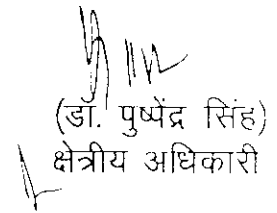 (डॉ. पुष्पेंद्र सिंह)
क्षेत्रीय अधिकारी